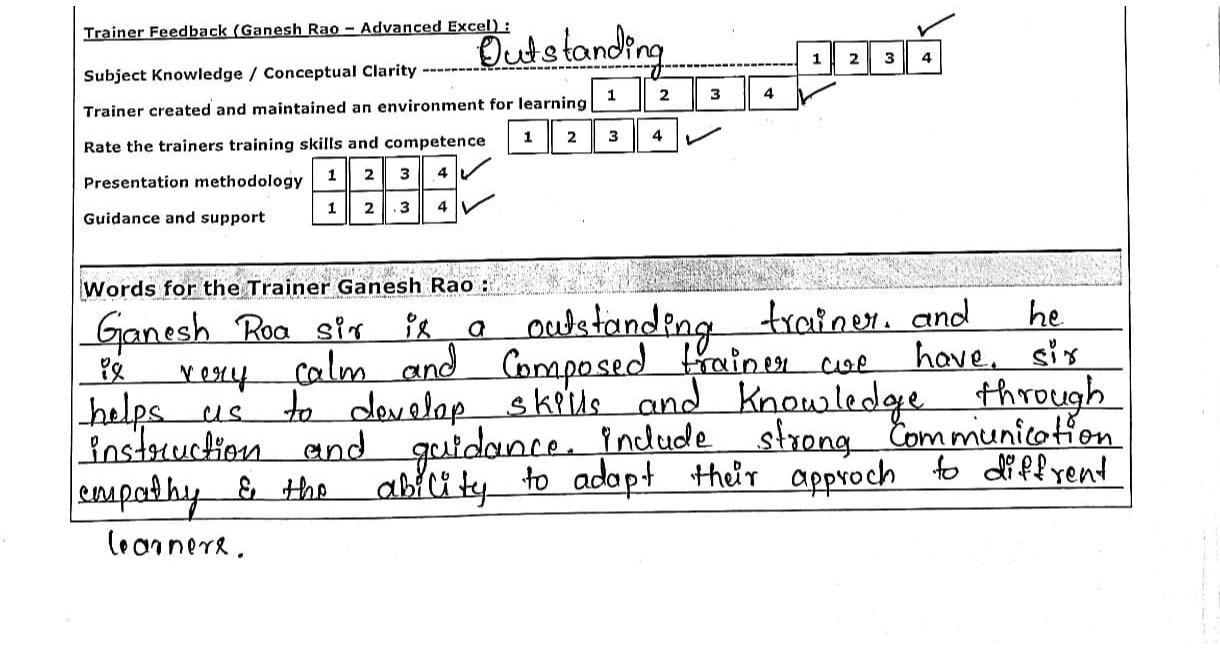 Trainer Feedback (Ganesh Rao – Advanced Excel) :
Outstanding
Subject Knowledge / Conceptual Clarity 1 2 3 4
Trainer created and maintained an environment for learning 1 2 3 4
Rate the trainers training skills and competence 1 2 3 4
Presentation methodology 1 2 3 4
Guidance and support 1 2 3 4
Words for the Trainer Ganesh Rao :
Ganesh Roa sir is a outstanding trainer. and he
is very calm and Composed trainer we have. sir
helps us to develop skills and Knowledge through
instruction and guidance. include strong Communication
empathy & the ability to adapt their approch to diffrent
learners.